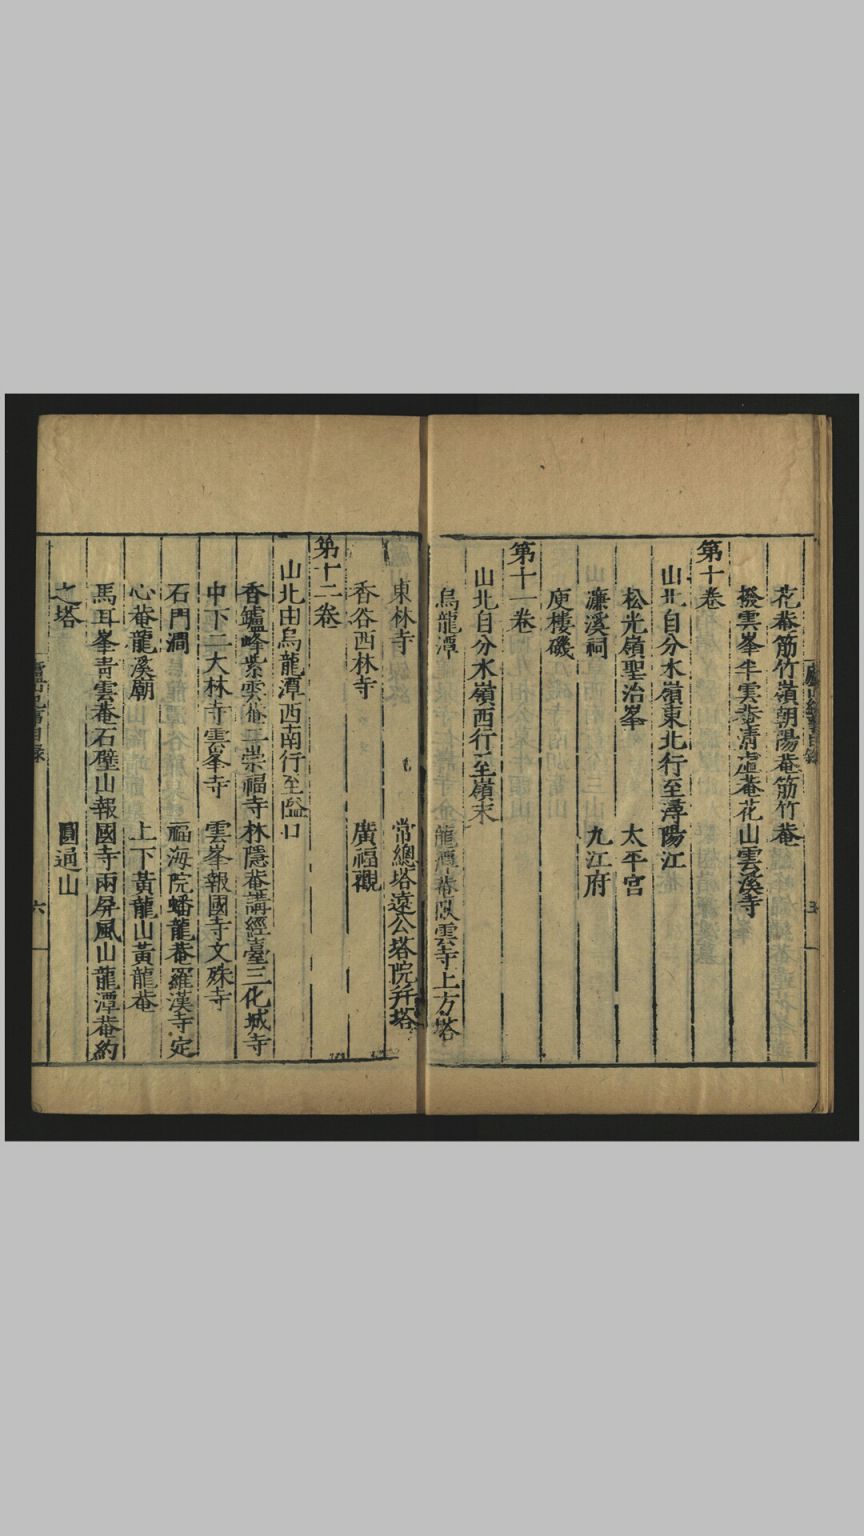 花菴筋竹嶺朝陽菴筋竹菴
撥雲峯半雲菴清虛菴花山雲溪寺
第十卷
山北自分水嶺東北行至潯陽江
松光嶺聖治峯 太平宮
濂溪祠 九江府
庾樓磯
第十一卷
山北自分水嶺西行至嶺末
烏龍潭 龍潭菴臥雲寺上方塔
東林寺 常總塔遠公塔院幷塔
香谷西林寺 廣福觀
第十二卷
山北由烏龍潭西南行至湓口
香鑪峰紫雲菴崇福寺林隱菴講經臺三化城寺
中下二大林寺雲峯寺 雲峯報國寺文殊寺
石門澗 福海院蟠龍菴羅漢寺定
心菴龍溪廟 上下黃龍山黃龍菴
馬耳峯靑雲菴石壁山報國寺兩屏風山龍潭菴約
之塔 圓通山
六